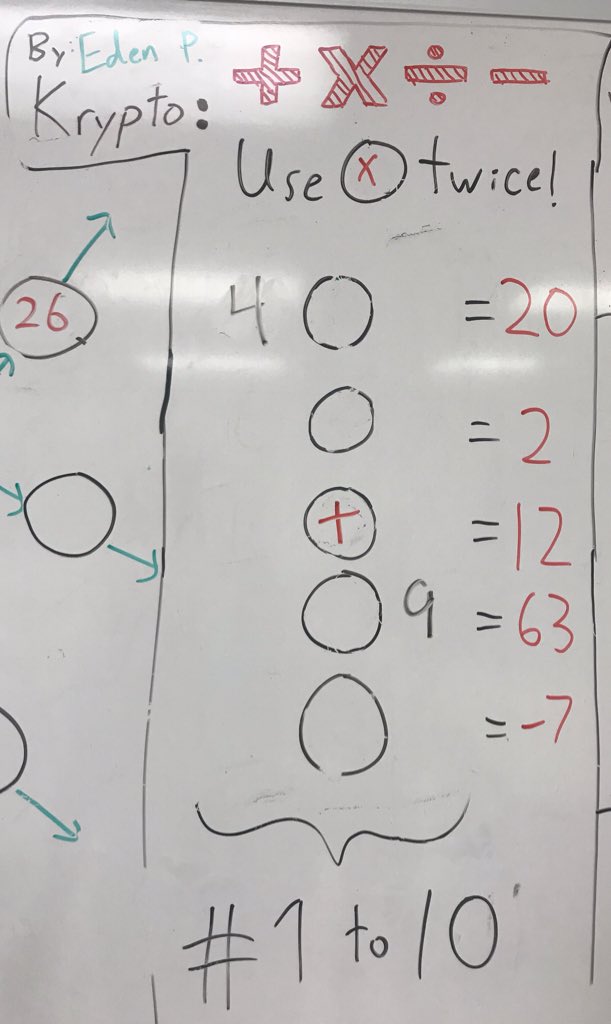 By: Eden P.
Krypto: + X ÷ −
Use x twice!
26
4 = 20
= 2
+ = 12
9 = 63
= -7
# 1 to 10